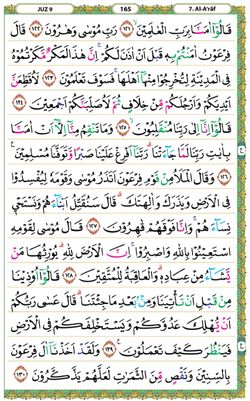 JUZ 9 165 7. Al-A'râf
قَالُوٓا۟ ءَامَنَّا بِرَبِّ ٱلْعَٰلَمِينَ ١٢١ رَبِّ مُوسَىٰ وَهَٰرُونَ ١٢٢ قَالَ
فِرْعَوْنُ ءَامَنتُم بِهِۦ قَبْلَ أَنْ ءَاذَنَ لَكُمْ ۖ إِنَّ هَٰذَا لَمَكْرٌ مَّكَرْتُمُوهُ
فِى ٱلْمَدِينَةِ لِتُخْرِجُوا۟ مِنْهَآ أَهْلَهَا ۖ فَسَوْفَ تَعْلَمُونَ ١٢٣ لَأُقَطِّعَنَّ
أَيْدِيَكُمْ وَأَرْجُلَكُم مِّنْ خِلَٰفٍ ثُمَّ لَأُصَلِّبَنَّكُمْ أَجْمَعِينَ ١٢٤
قَالُوٓا۟ إِنَّآ إِلَىٰ رَبِّنَا مُنقَلِبُونَ ١٢٥ وَمَا تَنقِمُ مِنَّآ إِلَّآ أَنْ ءَامَنَّا
بِـَٔايَٰتِ رَبِّنَا لَمَّا جَآءَتْنَا ۚ رَبَّنَآ أَفْرِغْ عَلَيْنَا صَبْرًا وَتَوَفَّنَا مُسْلِمِينَ
١٢٦ وَقَالَ ٱلْمَلَأُ مِن قَوْمِ فِرْعَوْنَ أَتَذَرُ مُوسَىٰ وَقَوْمَهُۥ لِيُفْسِدُوا۟
فِى ٱلْأَرْضِ وَيَذَرَكَ وَءَالِهَتَكَ ۚ قَالَ سَنُقَتِّلُ أَبْنَآءَهُمْ وَنَسْتَحْىِۦ
نِسَآءَهُمْ وَإِنَّا فَوْقَهُمْ قَٰهِرُونَ ١٢٧ قَالَ مُوسَىٰ لِقَوْمِهِ
ٱسْتَعِينُوا۟ بِٱللَّهِ وَٱصْبِرُوٓا۟ ۖ إِنَّ ٱلْأَرْضَ لِلَّهِ يُورِثُهَا مَن
يَشَآءُ مِنْ عِبَادِهِۦ ۖ وَٱلْعَٰقِبَةُ لِلْمُتَّقِينَ ١٢٨ قَالُوٓا۟ أُوذِينَا
مِن قَبْلِ أَن تَأْتِيَنَا وَمِنۢ بَعْدِ مَا جِئْتَنَا ۚ قَالَ عَسَىٰ رَبُّكُمْ
أَن يُهْلِكَ عَدُوَّكُمْ وَيَسْتَخْلِفَكُمْ فِى ٱلْأَرْضِ
فَيَنظُرَ كَيْفَ تَعْمَلُونَ ١٢٩ وَلَقَدْ أَخَذْنَآ ءَالَ فِرْعَوْنَ
بِٱلسِّنِينَ وَنَقْصٍ مِّنَ ٱلثَّمَرَٰتِ لَعَلَّهُمْ يَذَّكَّرُونَ ١٣٠